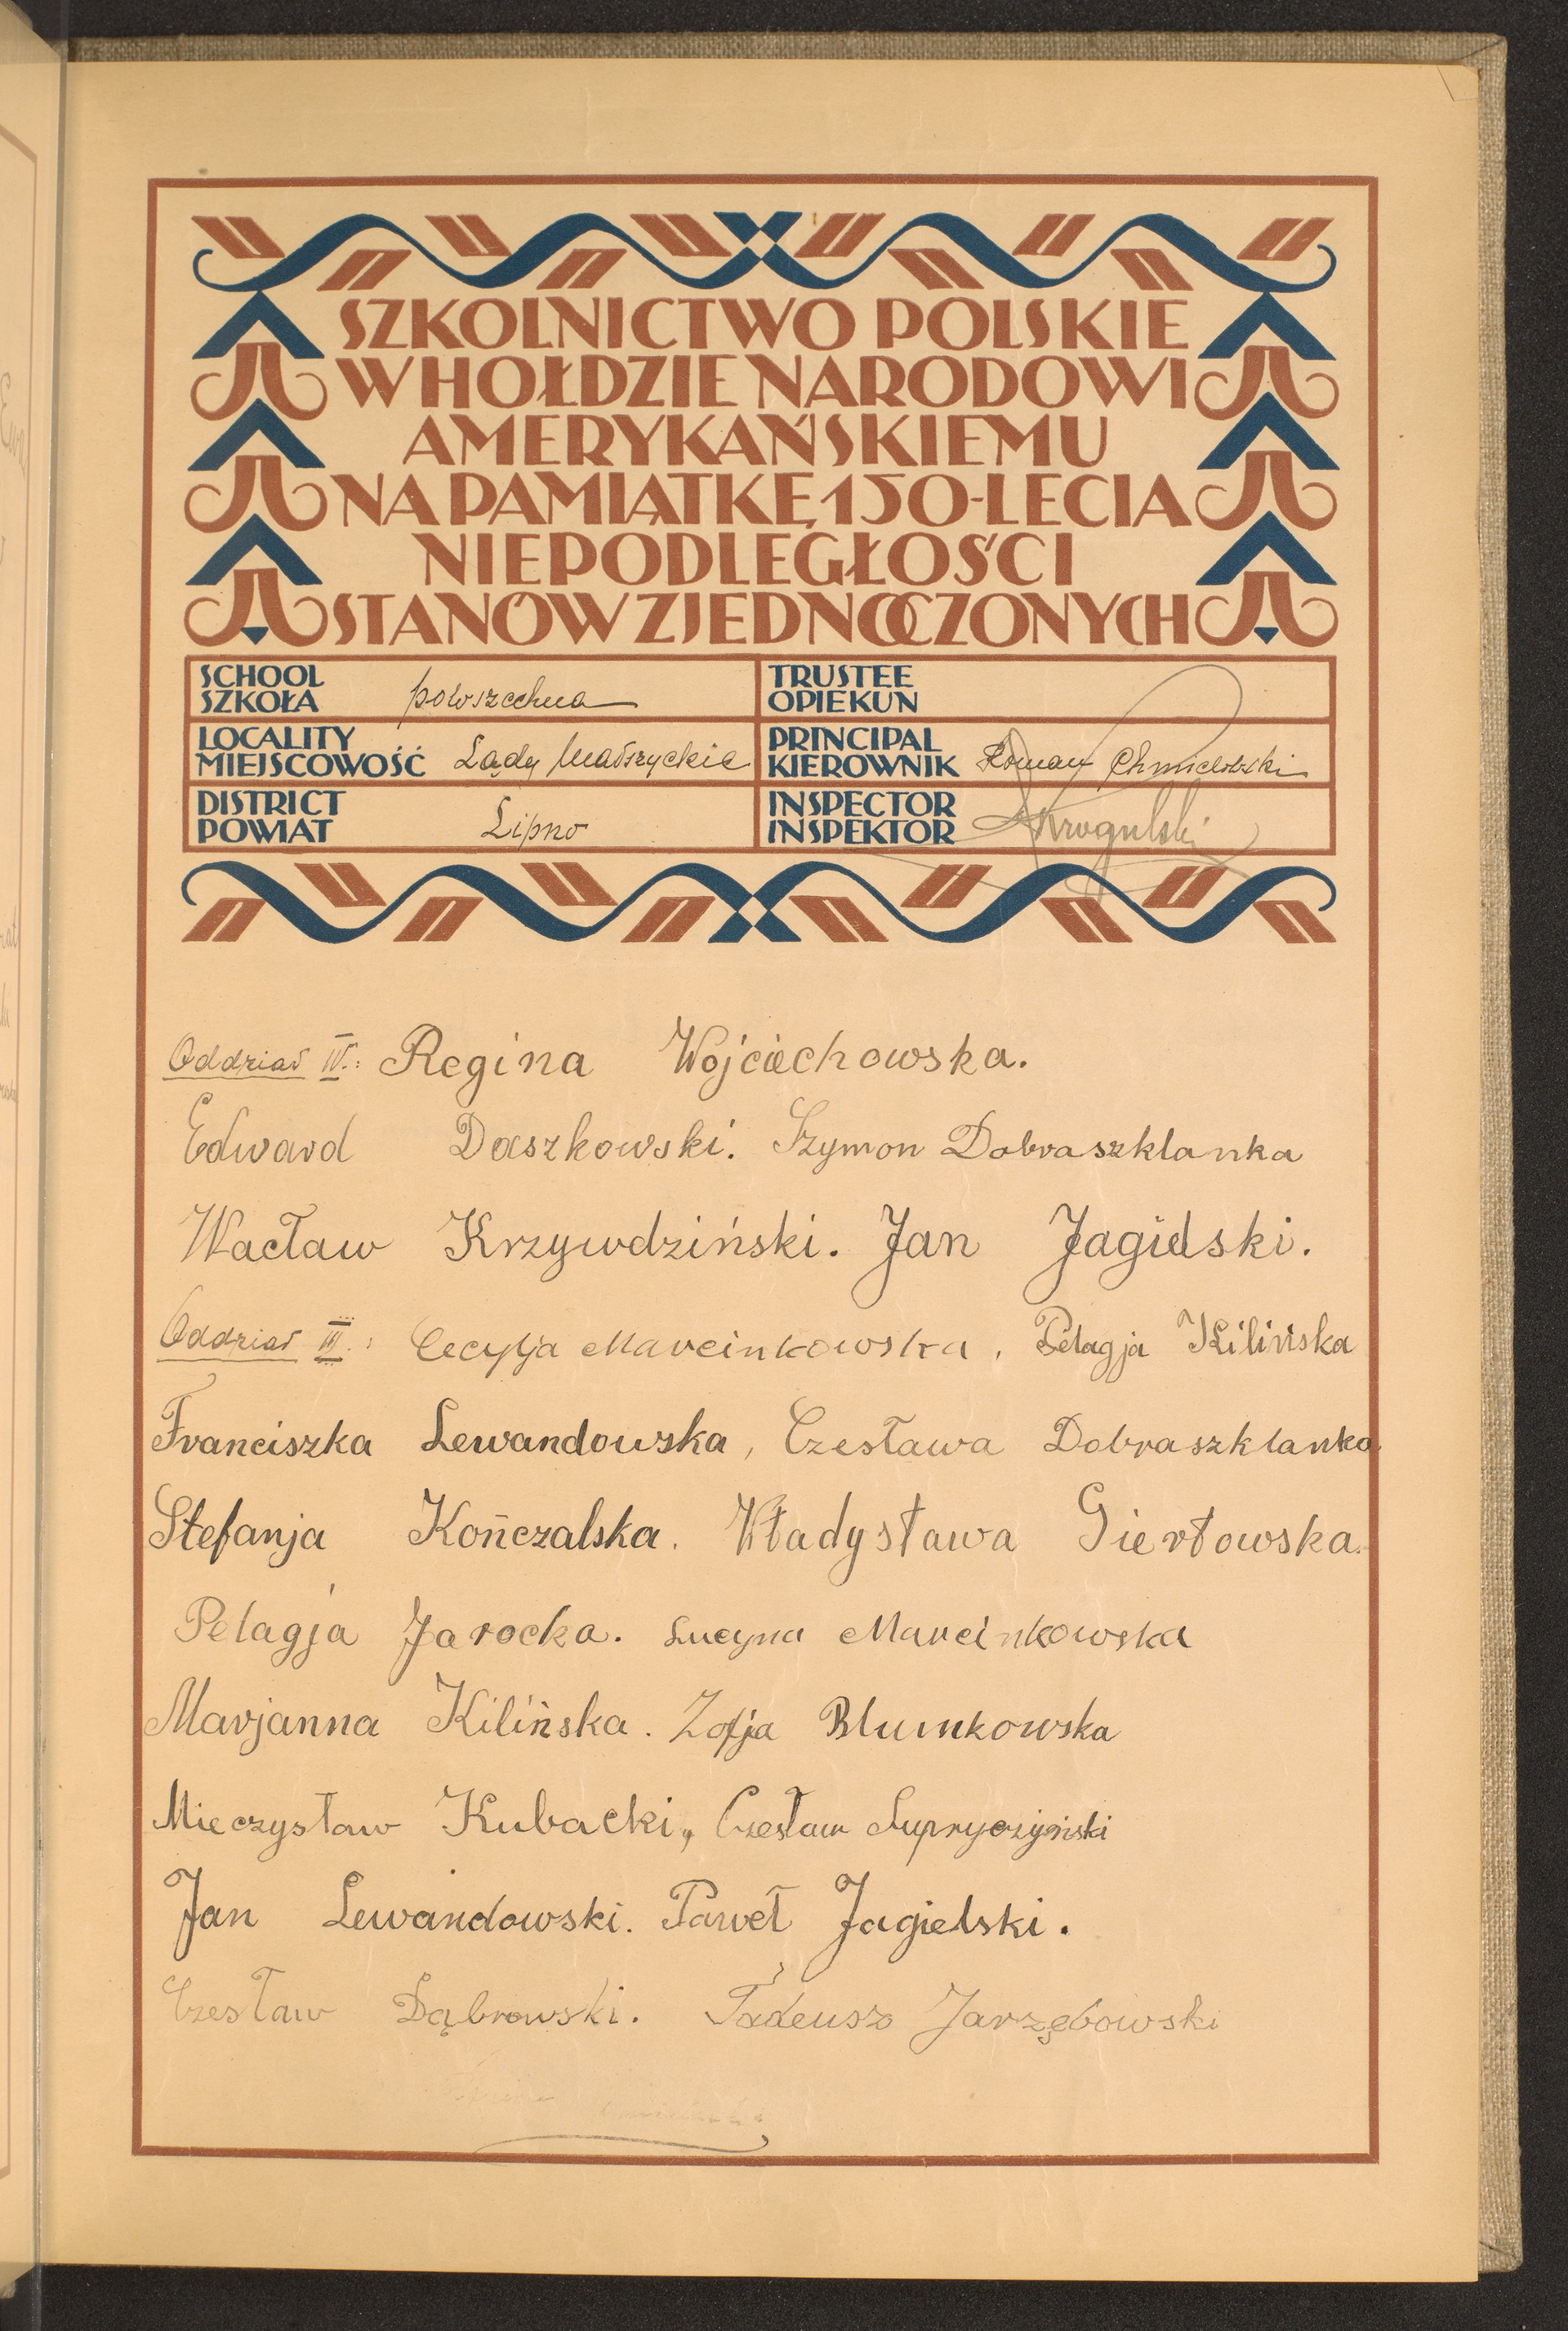 SZKOLNICTWO POLSKIE
W HOŁDZIE NARODOWI
AMERYKAŃSKIEMU
NA PAMIĄTKĘ 150-LECIA
NIEPODLEGŁOŚCI
STANÓW ZJEDNOCZONYCH
SCHOOL
SZKOŁA powszechna
TRUSTEE
OPIEKUN
LOCALITY
MIEJSCOWOŚĆ Lądy Małszyckie
PRINCIPAL
KIEROWNIK Roman Chmielewski
DISTRICT
POWIAT Lipno
INSPECTOR
INSPEKTOR Krogulski
Oddział IV.: Regina Wojciechowska.
Edward Daszkowski. Szymon Dobraszklanka
Wacław Krzywdziński. Jan Jagielski.
Oddział III.: Cecylja Marcinkowska, Pelagja Kilińska
Franciszka Lewandowska, Czesława Dobraszklanka
Stefanja Kończalska. Władysława Giertowska.
Pelagja Jarocka. Lucyna Marcinkowska
Marjanna Kilińska. Zofja Blumkowska
Mieczysław Kubacki, Czesław Supryczyński
Jan Lewandowski. Paweł Jagielski.
Czesław Dąbrowski. Tadeusz Jarzębowski